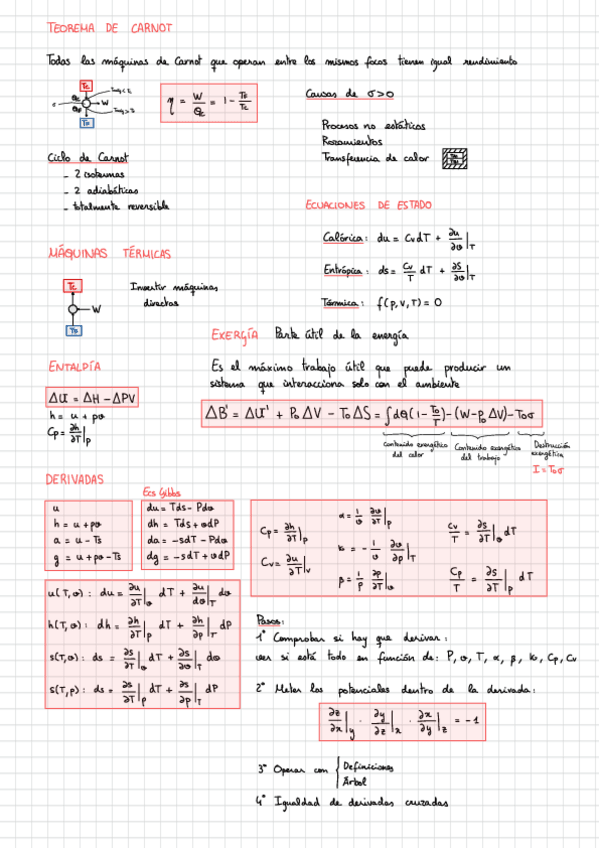 TEOREMA DE CARNOT
Todas las máquinas de Carnot que operan entre los mismos focos tienen igual rendimiento
Tc
Qc
W
QF
TF
η = W/Qc = 1 - TF/Tc
Causas de σ>0
Procesos no estáticos
Rozamientos
Transferencia de calor
Ciclo de Carnot
- 2 isotermas
- 2 adiabáticas
- totalmente reversible
ECUACIONES DE ESTADO
Calórica: du = Cv dT + ∂u/∂v|T
Entrópica: ds = Cv/T dT + ∂S/∂v|T
Térmica: f(p,v,T) = 0
MÁQUINAS TÉRMICAS
Tc
W
TF
Invertir máquinas
directas
EXERGÍA Parte útil de la energía
Es el máximo trabajo útil que puede producir un
sistema que interacciona solo con el ambiente
ΔB' = ΔU' + P₀ΔV - T₀ΔS = ∫dQ(1 - T₀/T) - (W - P₀ΔV) - T₀σ
Contenido exergético
del calor
Contenido exergético
del trabajo
Destrucción
exergética
I = T₀σ
ENTALPÍA
ΔU = ΔH - ΔPV
h = u + pv
Cp = ∂h/∂T|p
DERIVADAS
u
h = u + pv
a = u - Ts
g = u + pv - Ts
Ecs Gibbs
du = Tds - Pdv
dh = Tds + vdP
da = -sdT - Pdv
dg = -sdT + vdP
Cp = ∂h/∂T|p
Cv = ∂u/∂T|v
α = 1/v ∂v/∂T|p
κ = - 1/v ∂v/∂p|T
β = 1/p ∂p/∂T|v
Cv/T = ∂s/∂T|v dT
Cp/T = ∂s/∂T|p dT
u(T,v): du = ∂u/∂T|v dT + ∂u/∂v|T dv
h(T,v): dh = ∂h/∂T|p dT + ∂h/∂p|T dP
s(T,v): ds = ∂s/∂T|v dT + ∂s/∂v|T dv
s(T,p): ds = ∂s/∂T|p dT + ∂s/∂p|T dP
Pasos:
1° Comprobar si hay que derivar:
ver si está todo en función de: P, v, T, α, β, κ, Cp, Cv
2° Meter los potenciales dentro de la derivada:
∂z/∂x|y · ∂y/∂z|x · ∂x/∂y|z = -1
3° Operar con { Definiciones
Árbol
4° Igualdad de derivadas cruzadas